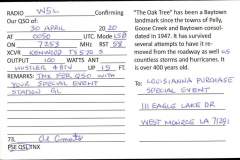 RADIO W5L Confirming
Our QSO of:
30 APRIL 2020
AT 0050 UTC. Mode LSB
ON 7253 MHz RST 58
XCVR KENWOOD TS570 S
OUTPUT 100 WATTS ANT
HUSTLER 4BTV UP 15 FT.
REMARKS: TNX FER QSO WITH
YOUR SPECIAL EVENT
STATION GL
73,
PSE QSL TNX
"The Oak Tree" has been a Baytown
landmark since the towns of Pelly,
Goose Creek and Baytown consol-
idated in 1947. It has survived
several attempts to have it re-
moved from the roadway as well as
countless storms and hurricanes. It
is over 400 years old.
TO: LOUISIANNA PURCHASE
SPECIAL EVENT
111 EAGLE LAKE DR
WEST MONROE LA 71291